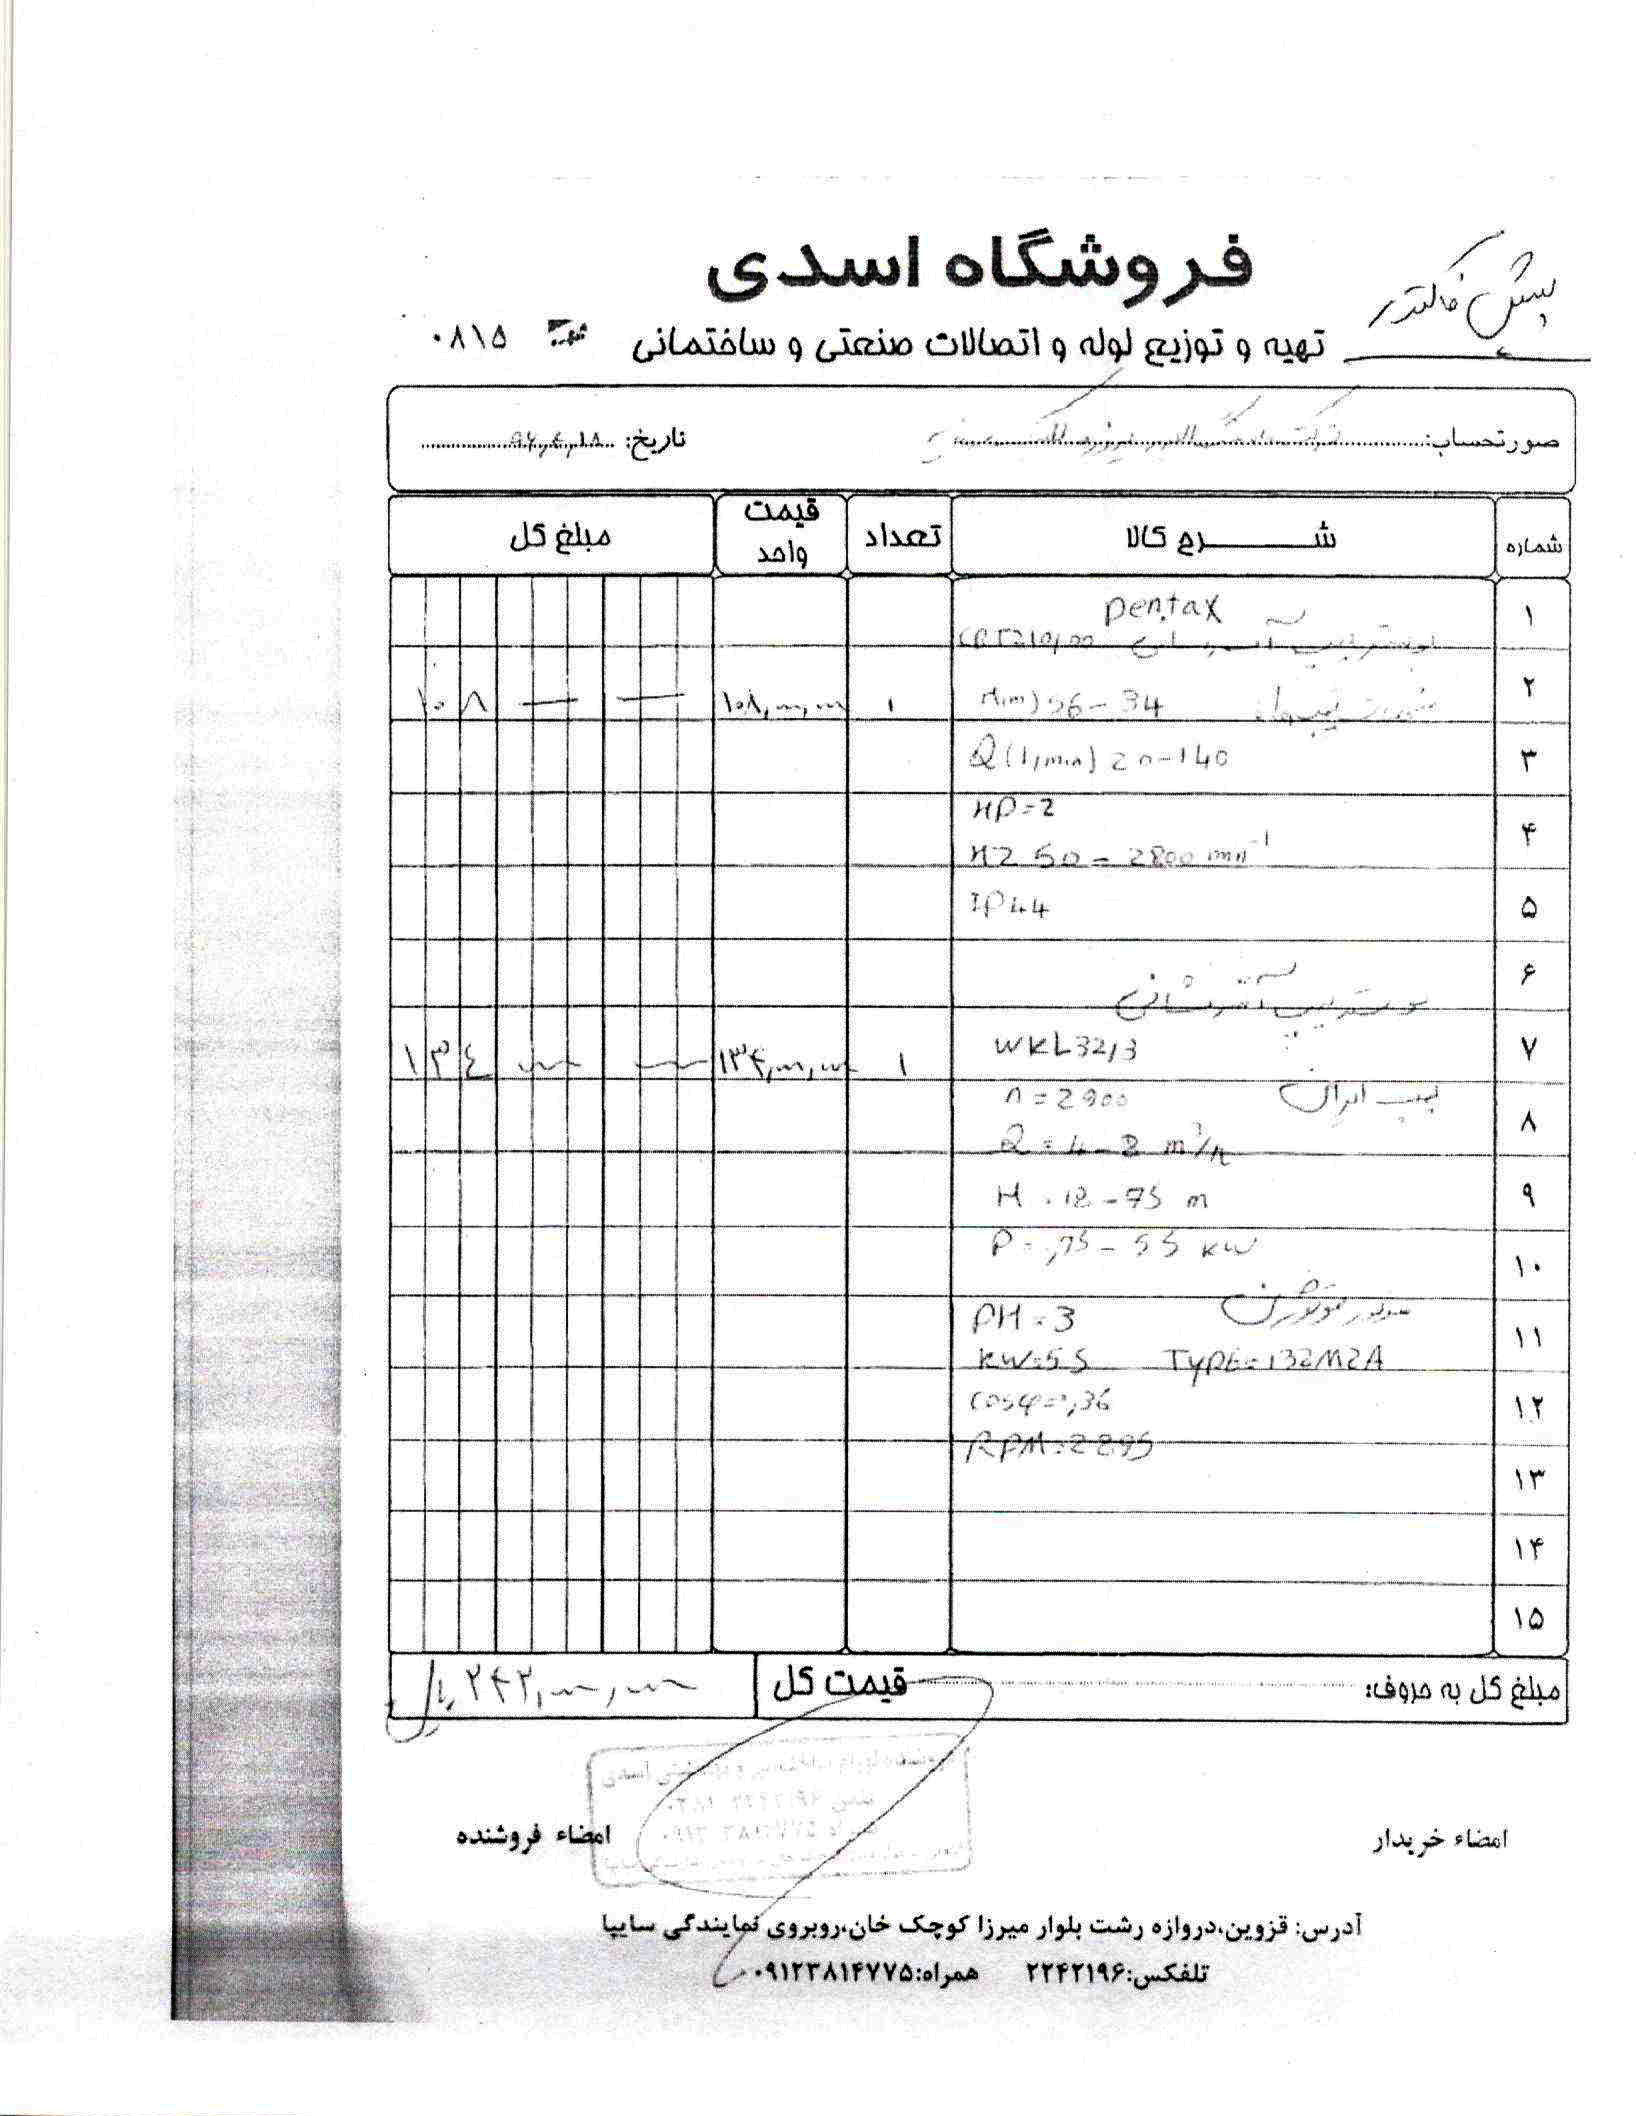 فروشگاه اسدی
پیش فاکتور
تهیه و توزیع لوله و اتصالات صنعتی و ساختمانی
۰۸۱۵
صورتحساب:
تاریخ: ۹۶,۴,۱۸
شماره شرح کالا تعداد قیمت واحد مبلغ کل
۱ pentax
بوستر پمپ آبرسانی
۲ H(m) 56-34 ۱ ۱۰۸,۰۰۰,۰۰۰ ۱۰۸ — —
۳ Q(l/min) 20-140
۴ HP=2
HZ 50 - 2800 min⁻¹
۵ IP44
۶ بوستر پمپ آتش نشانی
۷ WKL32/3 ۱ ۱۳۴,۰۰۰,۰۰۰ ۱۳۴
۸ پمپ ایران n=2900
Q=4-8 m³/h
۹ H=18-75 m
۱۰ P=,75-55 KW
۱۱ موتور موتوژن PH=3
KW=5.5 TYPE=132M2A
۱۲ cosφ=0,36
RPM=2895
۱۳
۱۴
۱۵
مبلغ کل به حروف: قیمت کل ۲۴۲,۰۰۰,۰۰۰ ریال
امضاء خریدار امضاء فروشنده
آدرس: قزوین،دروازه رشت بلوار میرزا کوچک خان،روبروی نمایندگی سایپا
تلفکس:۲۲۴۲۱۹۶ همراه:۰۹۱۲۳۸۱۴۷۷۵